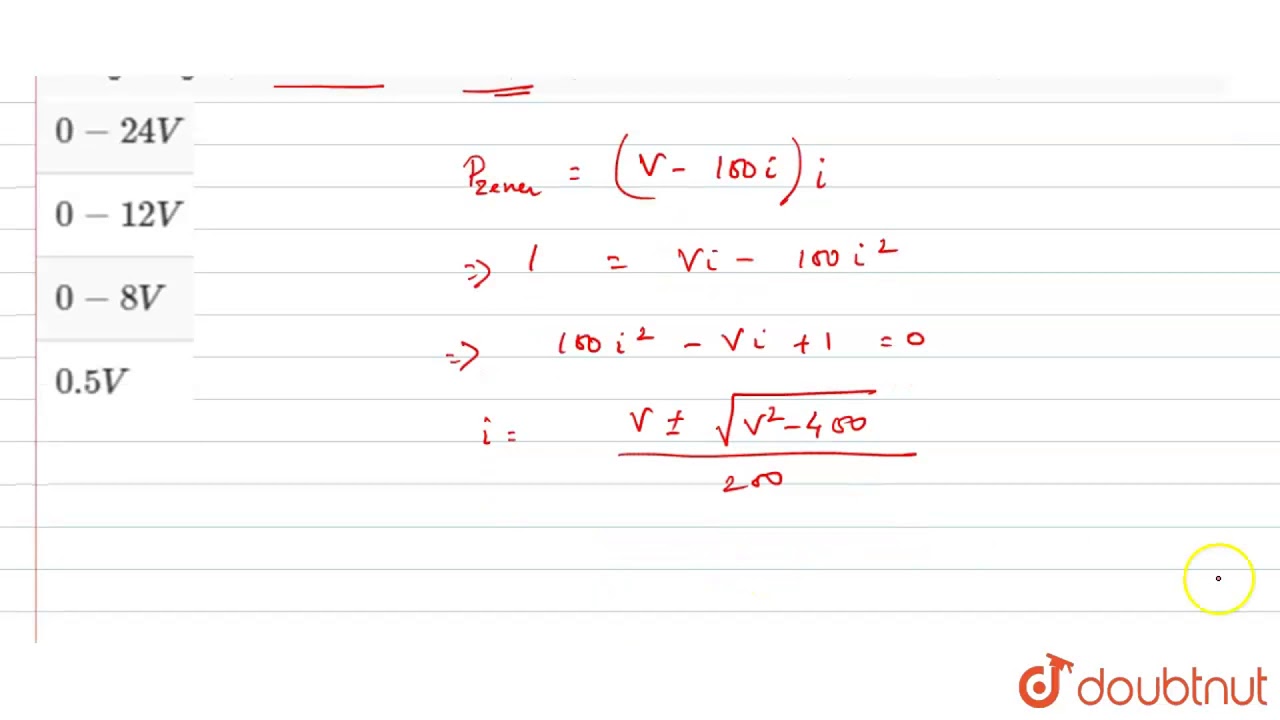 0 − 24V
0 − 12V
0 − 8V
0.5V
Pzener = (V − 100i) i
⇒ 1 = Vi − 100i²
⇒ 100i² − Vi + 1 = 0
i = V ± √V² − 400
200
doubtnut